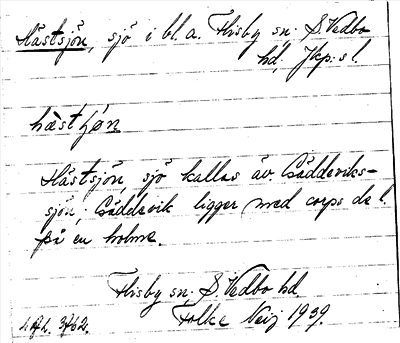 Hästsjön, sjö i bl.a. Flisby sn. S. Vedbo
hd, Jkp:s l.
hästʃön
Hästsjön, sjö kallas äv. Gäddeviks-
sjön; Gäddevik ligger med corps de l.
på en holme.
Flisby sn. S. Vedbo hd.
Folke Neij 1939.
3762.